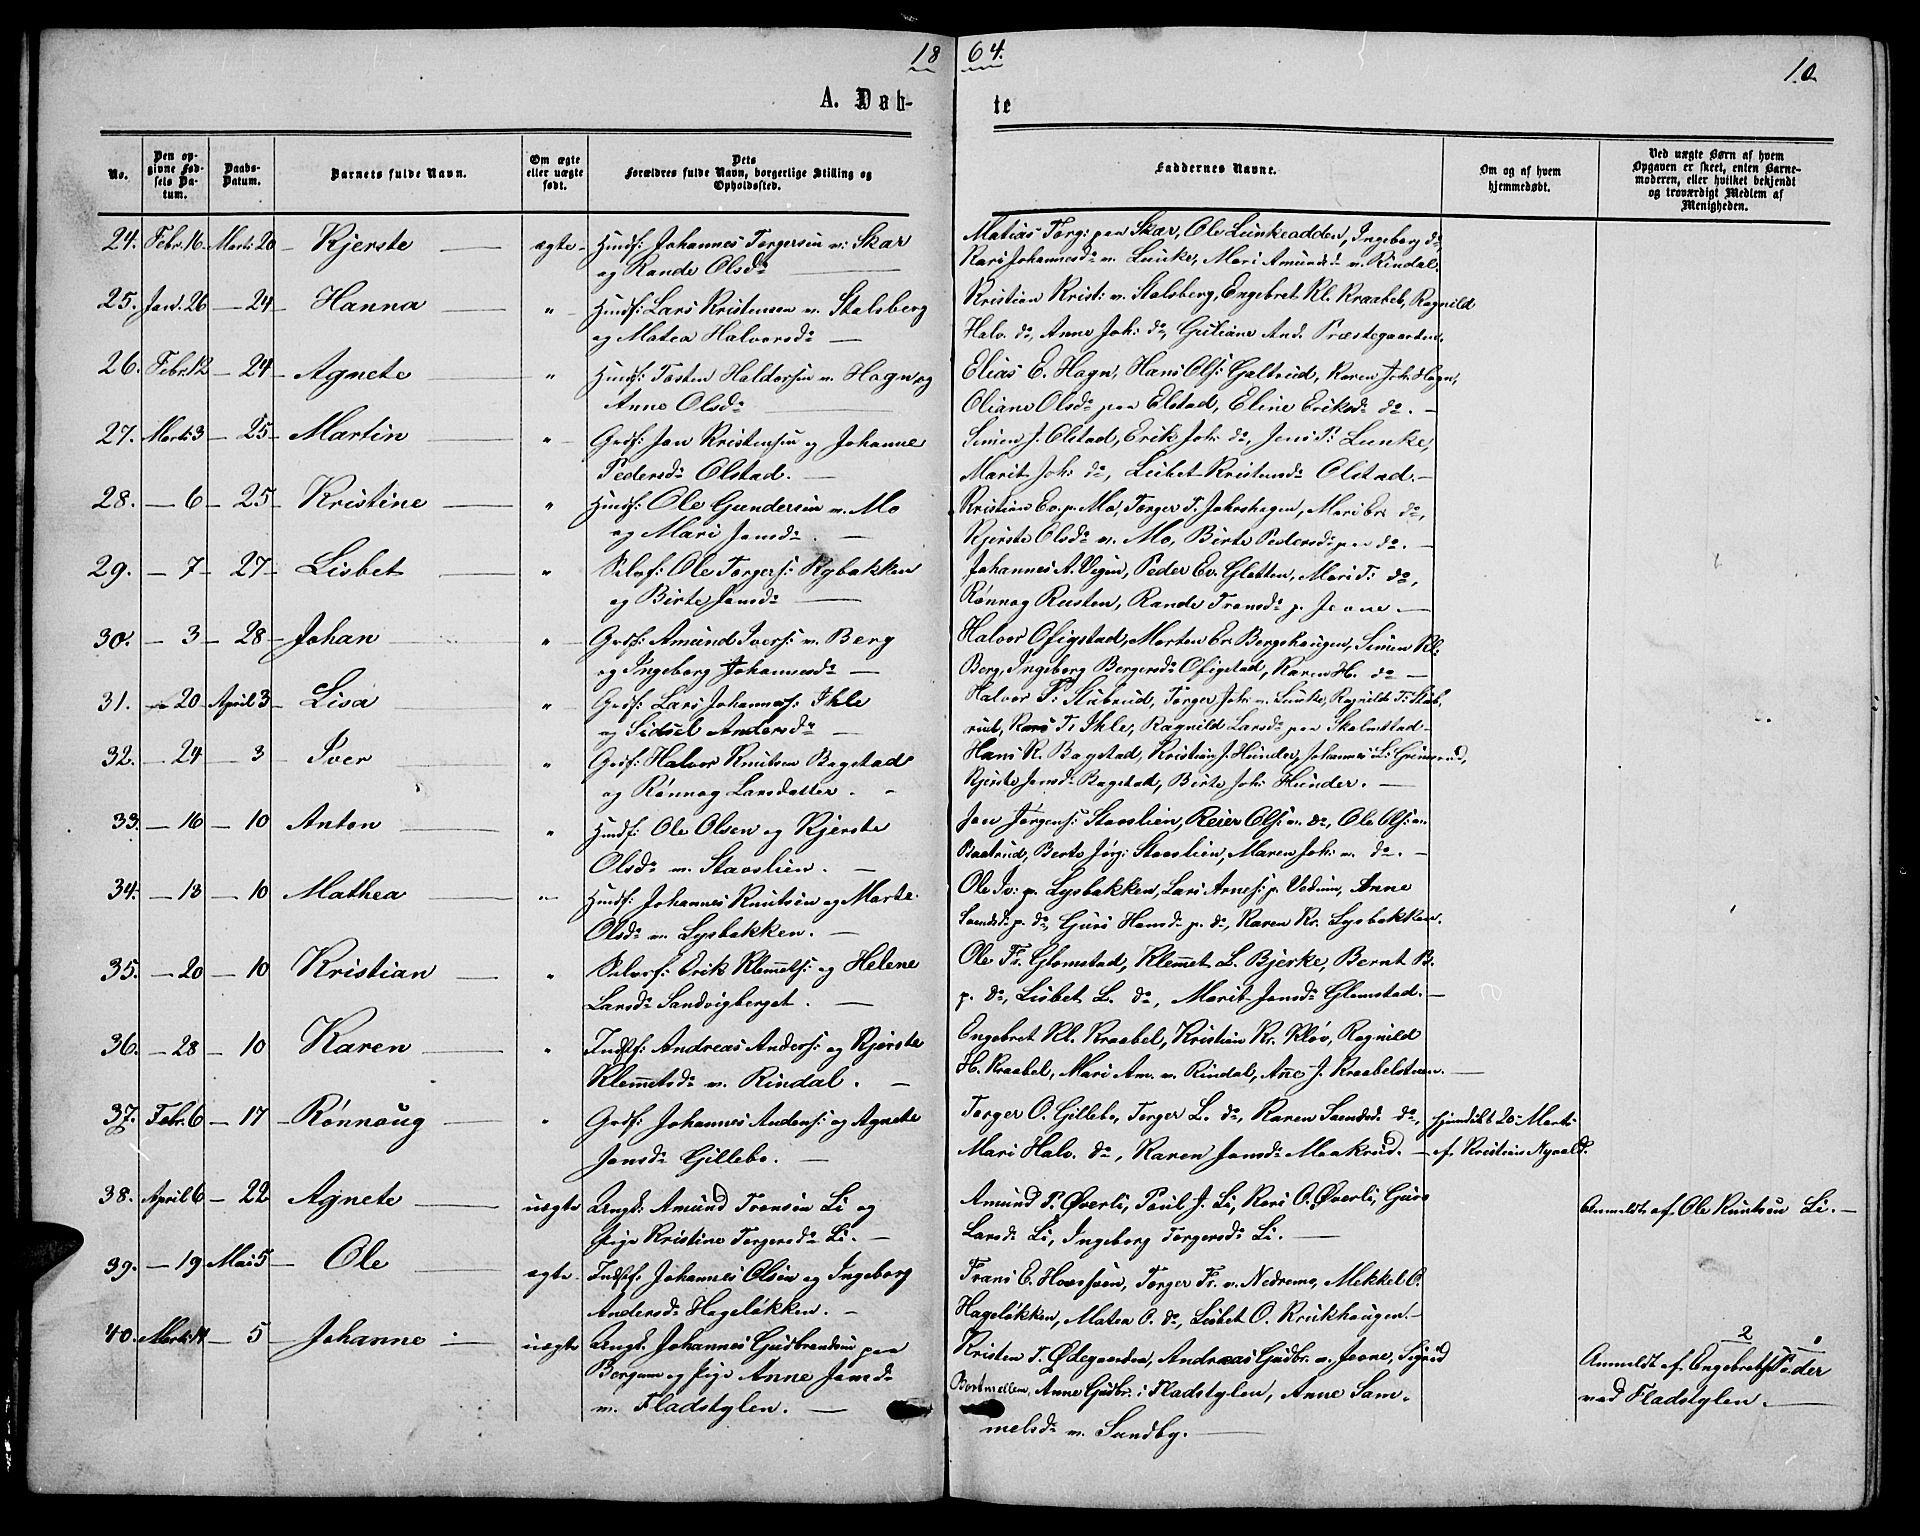 18 64.
10
A. Døb-
te
No.
Den op-
givne Fød-
sels Da-
tum.
Daabs-
Datum.
Barnets fulde Navn.
Om ægte
eller uægte
født.
Dets
Forældres fulde Navn, borgerlige Stilling og
Opholdssted.
Faddernes Navne.
Om og af hvem
hjemmedøbt.
Ved uægte Børn af hvem
Opgaven er skeet, enten Barne-
moderen, eller hvilket bekjendt
og troværdigt Medlem af
Menigheden.
24. Febr. 16 Marts 20 Kjerste ægte Huusf: Johannes Torgersen v: Skar
og Rande Olsdr
Matias Torg: paa Skar, Ole Lunkeodden, Ingeborg do,
Kari Johannesdr v. Lunke, Mari Amundsdr v. Rindal.
25. Jan. 26 24 Hanna " Huusf: Lars Kristensen v. Stalsberg
og Matea Halvorsdr
Kristian Krist: v. Stalsberg, Engebret Kl. Kraabel, Ragnild
Halv. do, Anne Joh: do, Guliane And. Præstegaarden.
26. Febr. 12 24 Agnete " Huusf: Tosten Haldorsen v. Hagn, og
Anne Olsdr
Elias E. Hagn, Hans Ols: Galtrud, Karen Joh: Hagn,
Oliane Olsdr paa Elstad, Eline Eriksdr do.
27. Marts 3 25 Martin " Grdf: Jan Kristensen og Johanne
Pedersdr Olstad.
Simen J. Olstad, Erik Joh: do, Jens P: Lunke,
Marit Joh: do, Lisbet Kristensdr Olstad.
28. 6 25 Kristine " Huusf: Ole Gundersen v. Mo
og Mari Jansdr
Kristian Ev. p. Mo, Torger T. Jahrshagen, Mari Er. do,
Kjerste Olsdr v. Mo, Birte Pedersdr paa do.
29. 7 27 Lisbet " Selvf: Ole Torgers: Rybakken
og Birte Jansdr
Johannes A. Vigun, Peder Ev. Glatten, Mari T: do,
Rønnog Rusten, Rande Transdr p. Jevne.
30. 3 28 Johan " Grdf: Amund Ivers: v. Berg
og Ingeborg Johannesdr
Halvor Ofigstad, Morten Er. Bergshaugen, Simen Kl:
Berg, Ingeborg Bergersdr Ofigstad, Karen H. do
31. 20 April 3 Lisa " Grdf: Lars Johanness: Ihle
og Sidsel Andersdr
Halvor T: Stubrud, Torger Joh: v. Lunke, Ragnild T: Stub,
rud, Kari T: Ihle, Ragnild Larsdr paa Skalmstad
32. 24 3 Iver " Grdf: Halvor Knutsen Bagstad
og Rønnog Larsdatter.
Hans K. Bagstad, Kristian J. Hunder, Johannes L: Grimsrud,
Kjerste Jansdr Bagstad, Birte Joh: Hunder.
33. 16 10 Anton " Huusf: Ole Olsen og Kjerste
Olsdr v. Stavslien.
Jan Jørgens: Stavslien, Reier Ols: v. do, Ole Ols: v.
Baatrud, Berte Jørg: Stavslien, Maren Joh: v. do.
34. 13 10 Mathea " Huusf: Johannes Knutsen og Marte
Olsdr v. Lysbakken.
Ole Iv: p. Lysbakken, Lars Arnes: p. Vedum, Anne
Svendsdr p. do, Guri Hansdr p. do, Karen Kr. Lysbakken.
35. 20 10 Kristian " Selvf: Erik Klemets: og Helene
Larsdr Sandvigberget.
Ole Fr. Glomstad, Klemet L. Bjerke, Bernt B.
p. do, Lisbet L. do, Marit Jansdr Glomstad.
36. 28 10 Karen " Indstf: Andreas Anders: og Kjerste
Klemetsdr v. Rindal.
Engebret Kl. Kraabel, Kristian Kr. Kløv, Ragnild
H. Kraabel, Mari Am. v. Rindal, Ane J. Kraabelstuen.
37. Febr. 6 17 Rønnoug " Grdf: Johannes Anders: og Agnete
Jansdr Gillebo.
Torger O. Gillebo, Torger L. do, Karen Svendsdr do,
Mari Halv. do, Karen Jansdr Maakrud.
hjemdøbt 20 Marts
af Kristian Nyvold.
38. April 6 22 Agnete uægte Ungk: Amund Transen Li og
Pige Kristine Torgersdr Li.
Amund P. Øverli, Poul J. Li, Kari O. Øverli, Guri
Larsdr Li, Ingeborg Torgersdr Li.
Anmeldt af Ole Knutsen Li.
39. 19 Mai 5 Ole ægte Indstf: Johannes Olsen og Ingeborg
Andersdr Hageløkken.
Frans E. Hovssven, Torger Fr. v. Nedremo, Mekkel O.
Hageløkken, Matea O. do, Lisbet O. Krukhaugen.
40. Marts 14 5 Johanne uægte Ungk. Johannes Gudbrandsen paa
Bergum og Pige Anne Jansdr
v. Fladstylen.
Kristen T. Ødegaarden, Andreas Gudbr. v. Jevne, Sigrid
Bortmellem, Anne Gudbr. i Fladstylen, Anne Sam-
melsdr v. Sundby.
2
Anmeldt af Engebret Peder
ved Fladstylen.